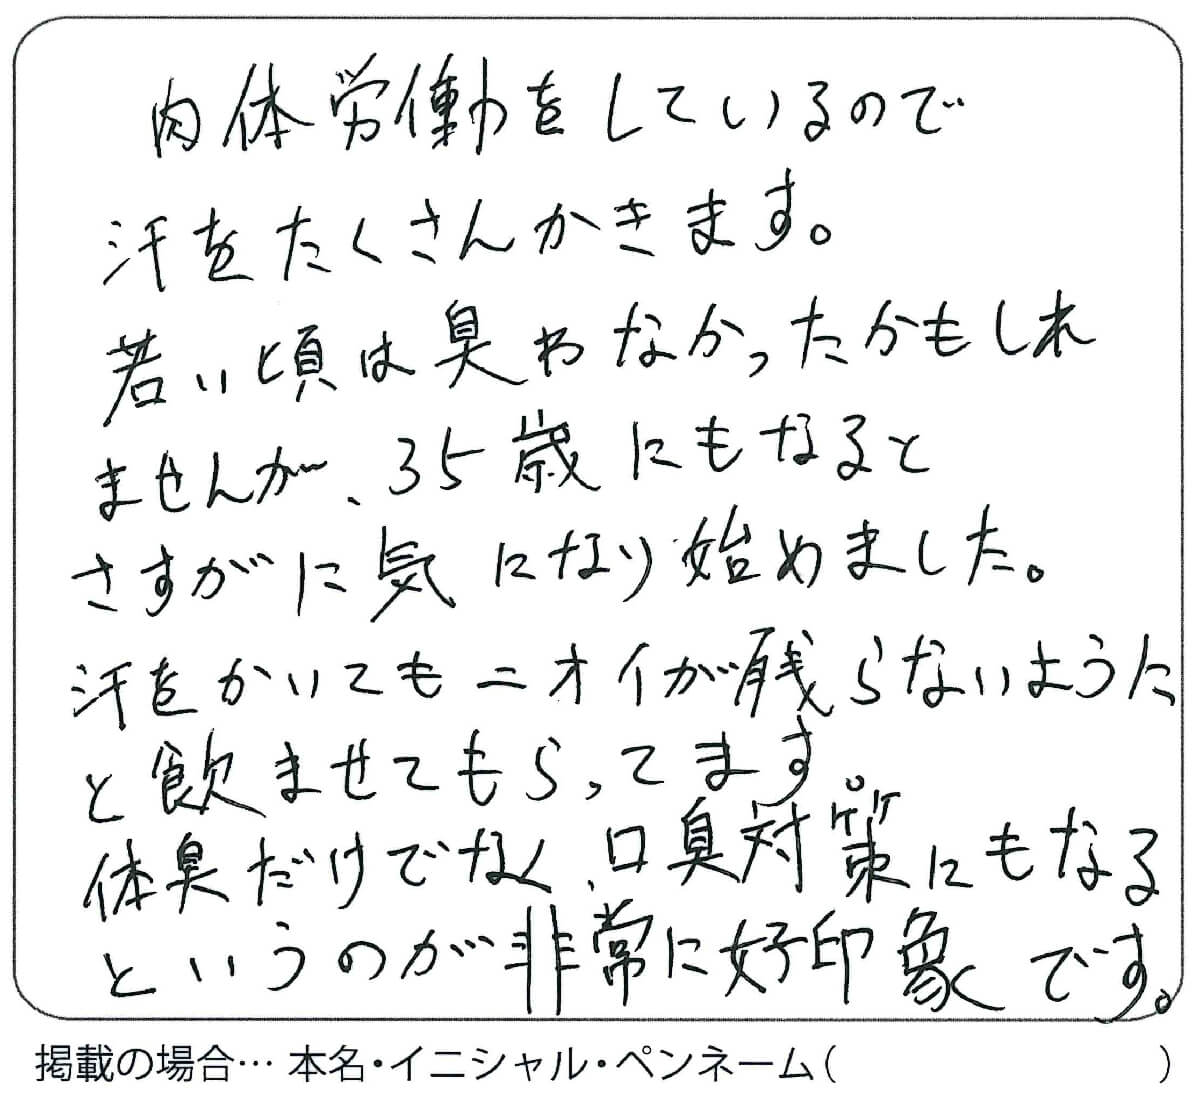 肉体労働をしているので
汗をたくさんかきます。
若い頃は臭わなかったかもしれ
ませんが、35歳にもなると
さすがに気になり始めました。
汗をかいてもニオイが残らないようた
と飲ませてもらってます。
体臭だけでなく、口臭対策にもなる
というのが非常に好印象です。
掲載の場合… 本名・イニシャル・ペンネーム（　　　　　　　　）